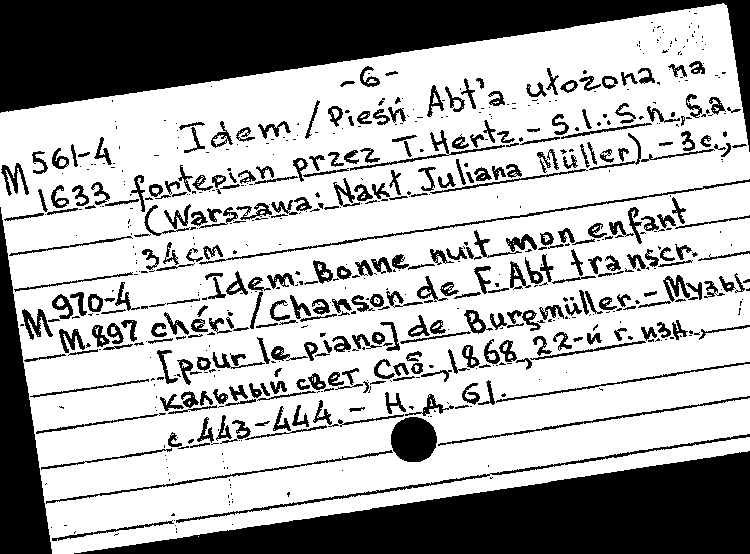 -6-
Idem / Pieśń Abt'a ułożona na
M 561-4
1633 fortepian przez T. Hertz. - S.l.: S.n., S.a.
(Warszawa: Nakł. Juliana Müller). - 3 c.;
34 cm.
Idem: Bonne nuit mon enfant
M 970-4
M.897 chéri / Chanson de F. Abt transcr.
[pour le piano] de Burgmüller. - Музы-
кальный свет, Спб., 1868, 22-й г. изд.,
с. 443-444. - Н. д. 61.